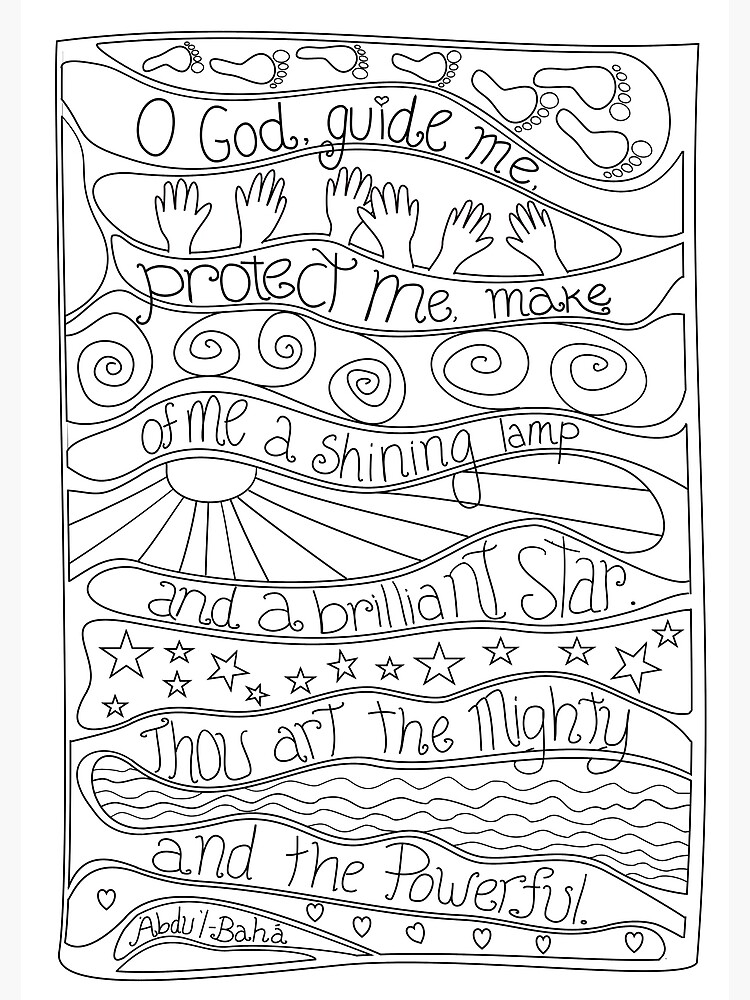 O God, guide me,
protect me, make
of me a shining lamp
and a brilliant star.
Thou art the Mighty
and the Powerful.
Abdu'l-Bahá